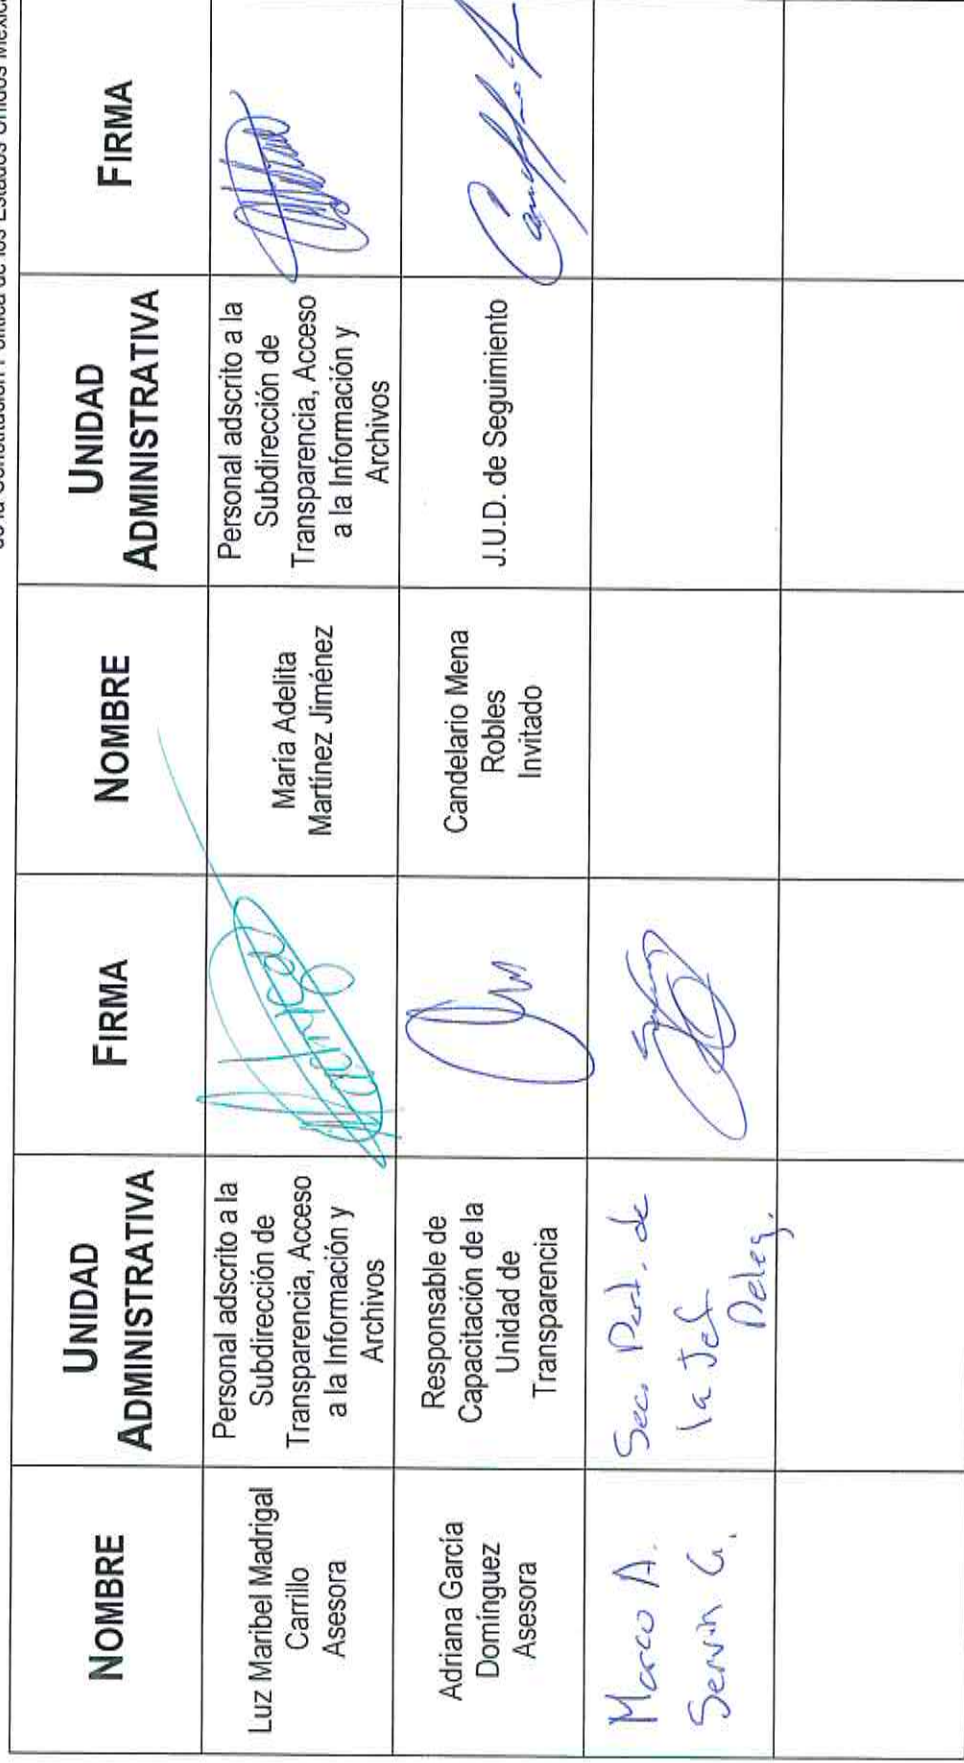 de la Constitución Política de los Estados Unidos
NOMBRE
UNIDAD
ADMINISTRATIVA
FIRMA
NOMBRE
UNIDAD
ADMINISTRATIVA
FIRMA
Luz Maribel Madrigal
Carrillo
Asesora
Personal adscrito a la
Subdirección de
Transparencia, Acceso
a la Información y
Archivos
María Adelita
Martínez Jiménez
Personal adscrito a la
Subdirección de
Transparencia, Acceso
a la Información y
Archivos
Adriana García
Domínguez
Asesora
Responsable de
Capacitación de la
Unidad de
Transparencia
Candelario Mena
Robles
Invitado
J.U.D. de Seguimiento
Marco A.
Servín G.
Sec. Part. de
la Jef.
Deleg.